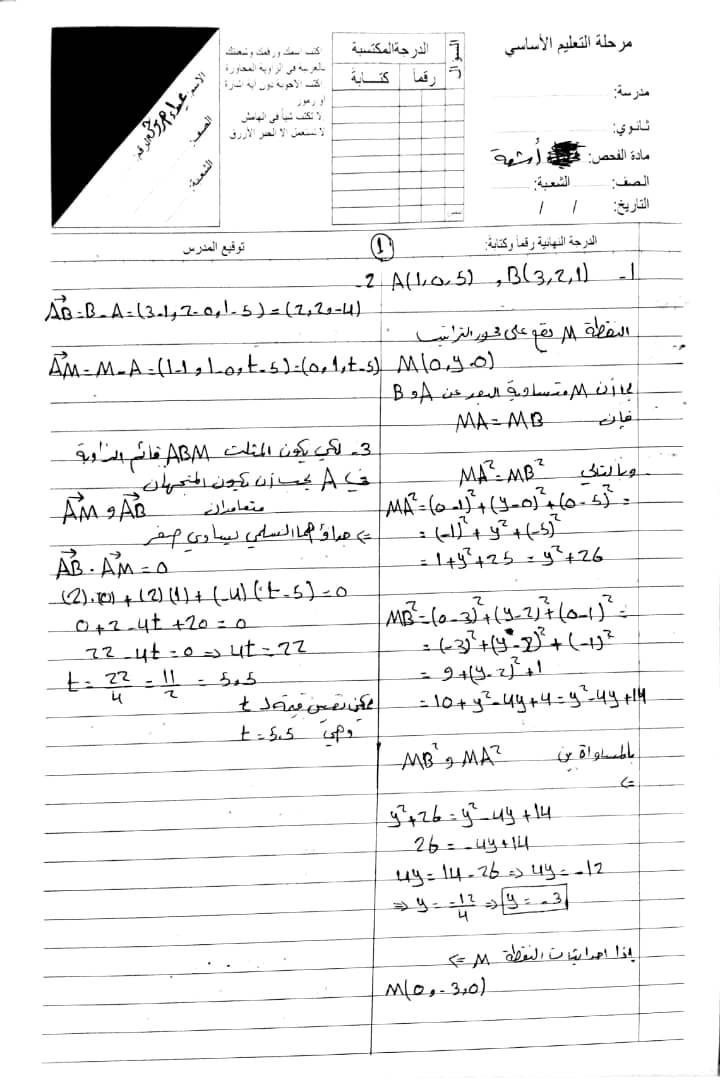 مرحلة التعليم الأساسي
مدرسة:
ثانوي:
مادة الفحص: أشعة
الصف: الشعبة:
التاريخ: / /
السؤال
الدرجة المكتسبة
رقماً
كتـــابة
اكتب اسمك ورقمك وشعبتك
بالعرسه في الزاوية المجاورة
كتب الاجوبة دون اية اشارة
او رموز
لا تكتب شيئاً في الهامش
لا تستعمل الا الحبر الأزرق
الاسم:
الصف:
الرقم:
الشعبة:
الدرجة النهائية رقماً وكتابة:
①
توقيع المدرس
1- A(1,0,5) , B(3,2,1)
النقطة M تقع على محور التراتيب
M(0,y,0)
بما أن M متساوية البعد عن A و B
فإن MA=MB
وبالتالي MA²=MB²
MA²=(0-1)²+(y-0)²+(0-5)²=
=(-1)²+y²+(-5)²
=1+y²+25=y²+26
MB²=(0-3)²+(y-2)²+(0-1)²=
=(-3)²+(y-2)²+(-1)²
=9+(y-2)²+1
=10+y²-4y+4=y²-4y+14
بالمساواة بين MA² و MB²
<=
y²+26=y²-4y+14
26=-4y+14
4y=14-26=>4y=-12
=>y=-12/4=>y=-3
إذا احداثيات النقطة M <=
M(0,-3,0)
2-
AB=B-A=(3-1,2-0,1-5)=(2,2,-4)
AM=M-A=(1-1,1-0,t-5)=(0,1,t-5)
3- لكي يكون المثلث ABM قائم الزاوية
في A يجب أن يكون المتجهان
AB و AM متعامدان
=> جداؤهما السلمي يساوي صفر
AB·AM=0
(2)·(0)+(2)(1)+(-4)(t-5)=0
0+2-4t+20=0
22-4t=0=>4t=22
t=22/4=11/2=5,5
يمكن تعيين قيمة لـ t
وهي t=5,5